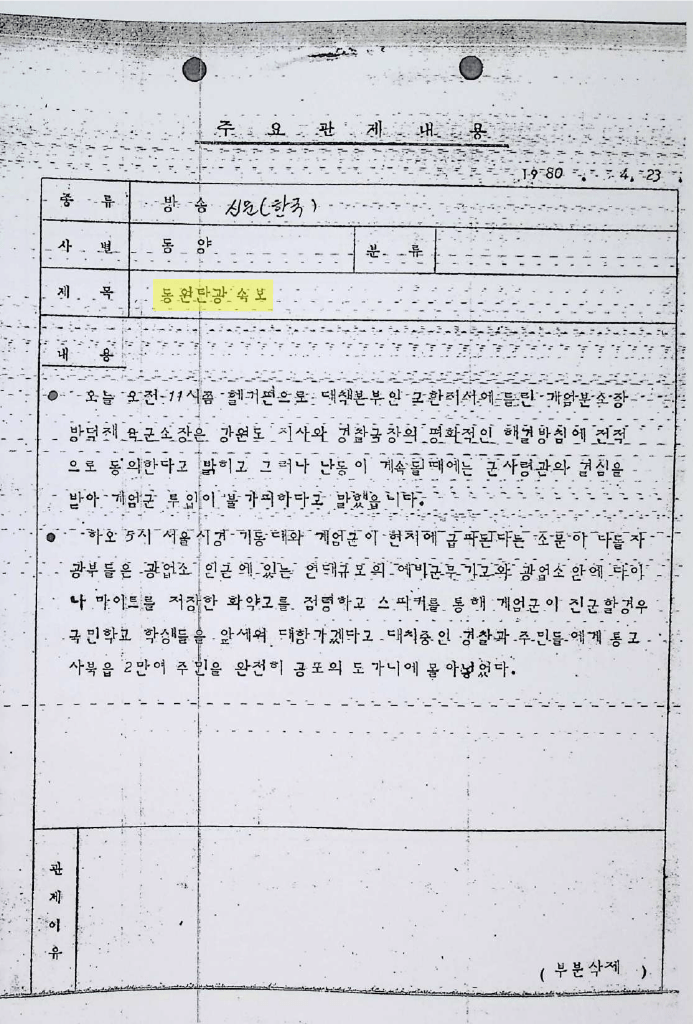 주 요 관 제 내 용
1980 . 4. 23 .
종 류 방 송 신문(한국)
사 별 동 양 분 류
제 목 동원탄광 속보
내 용
● 오늘 오전 11시쯤 헬기편으로 대책본부인 고한지서에 들린 계엄분소장
방덕제 육군소장은 강원도 지사와 경찰국장의 평화적인 해결방침에 전적
으로 동의한다고 밝히고 그러나 난동이 계속될때에는 군사령관의 결심을
받아 계엄군 투입이 불가피하다고 말했읍니다.
● 하오 5시 서울시경 기동대와 계엄군이 현지에 급파된다는 소문이 나돌자
광부들은 광업소 인근에 있는 연대규모의 예비군무기고와 광업소안에 다이
나마이트를 저장한 화약고를 점령하고 스피커를 통해 계엄군이 진군할경우
국민학교 학생들을 앞세워 대항하겠다고 대치중인 경찰과 주민들에게 통고
사북읍 2만여 주민을 완전히 공포의 도가니에 몰아넣었다.
관
제
이
유
( 부분삭제 )